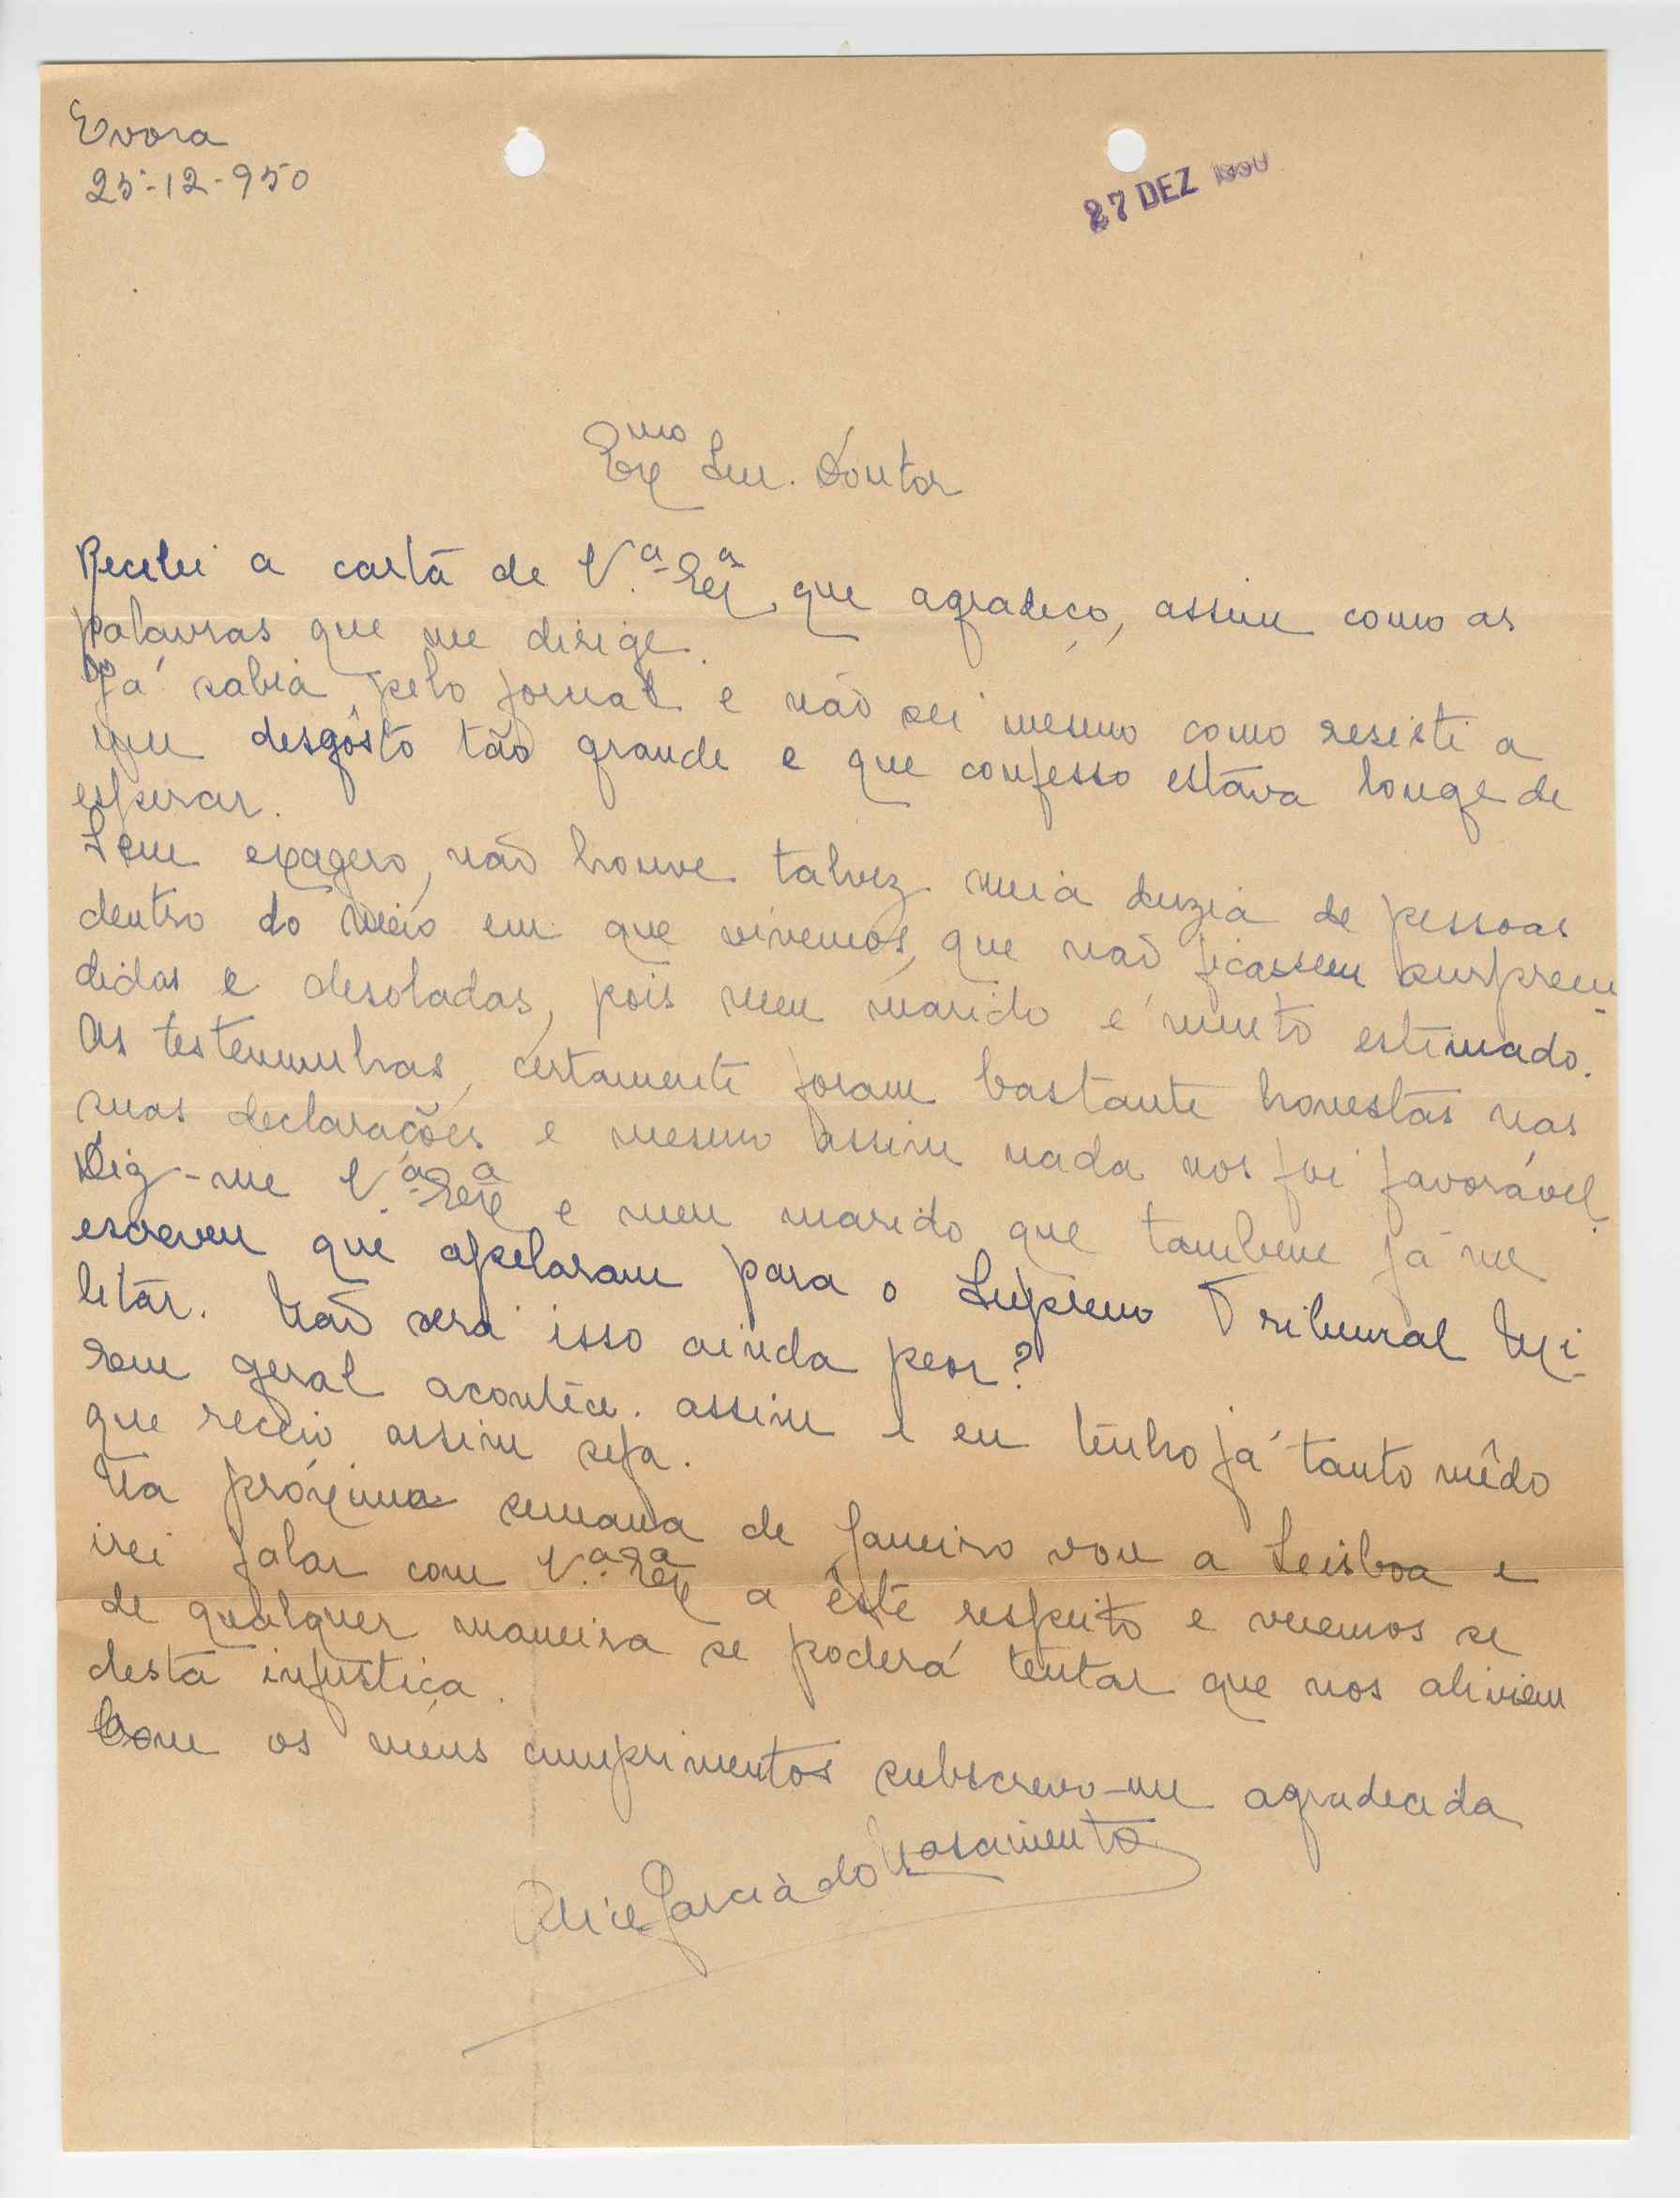 Evora
25-12-950
27 DEZ 1950
Exmo Snr. Doutor
Recebi a carta de V.ª Exª, que agradeço, assim como as
palavras que me dirige.
Já sabia pelo jornal e não sei mesmo como resisti a
um desgôsto tão grande e que confesso estava longe de
esperar.
Sem exagero, não houve talvez meia duzia de pessoas
dentro do meio em que vivemos, que não ficassem surpreen-
didas e desoladas, pois meu marido é muito estimado.
As testemunhas, certamente foram bastante honestas nas
suas declarações e mesmo assim nada nos foi favorável.
Diz-me V.ª Exª e meu marido que tambem já me
escreveu que apelaram para o Supremo Tribunal Mi-
litar. Não será isso ainda peor?
Em geral acontece assim e eu tenho já tanto mêdo
que receio assim seja.
Na próxima semana de Janeiro vou a Lisboa e
irei falar com V.ª Exª a êste respeito e veremos se
de qualquer maneira se poderá tentar que nos aliviem
desta injustiça.
Com os meus cumprimentos subscrevo-me agradecida
Alice Garcia do